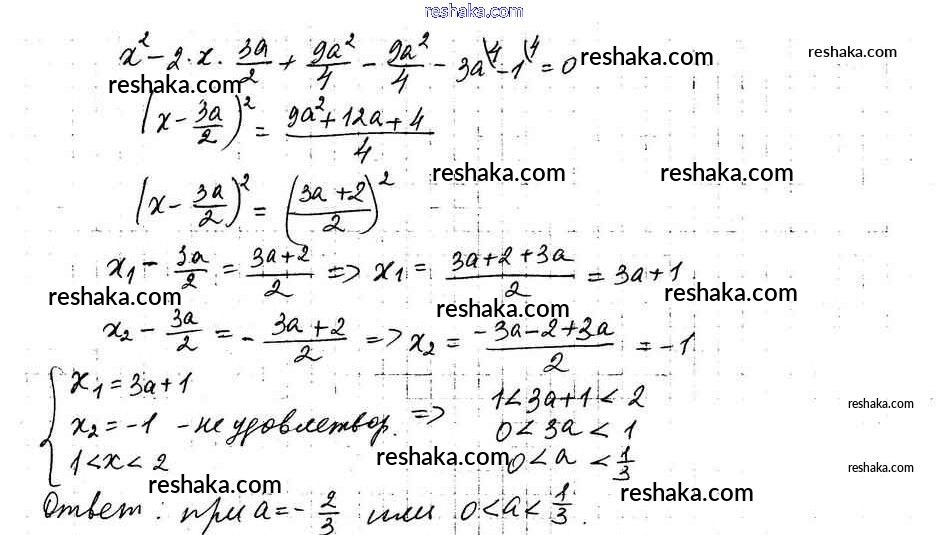 reshaka.com
x² − 2·x· 3a/2 + 9a²/4 − 9a²/4 − 3a\4 − 1\4 = 0 reshaka.com reshaka.com
reshaka.com
(x − 3a/2)² = (9a² + 12a + 4)/4
reshaka.com reshaka.com
(x − 3a/2)² = ((3a + 2)/2)²
x₁ − 3a/2 = (3a + 2)/2 => x₁ = (3a + 2 + 3a)/2 = 3a + 1
reshaka.com reshaka.com reshaka.com
x₂ − 3a/2 = − (3a + 2)/2 => x₂ = (−3a − 2 + 3a)/2 = −1
{ x₁ = 3a + 1 1 < 3a + 1 < 2
reshaka.com
x₂ = −1 − не удовлетвор. => 0 < 3a < 1
1 < x < 2 reshaka.com 0 < a < 1/3 reshaka.com
reshaka.com reshaka.com
Ответ: при a = − 2/3 или 0 < a < 1/3.